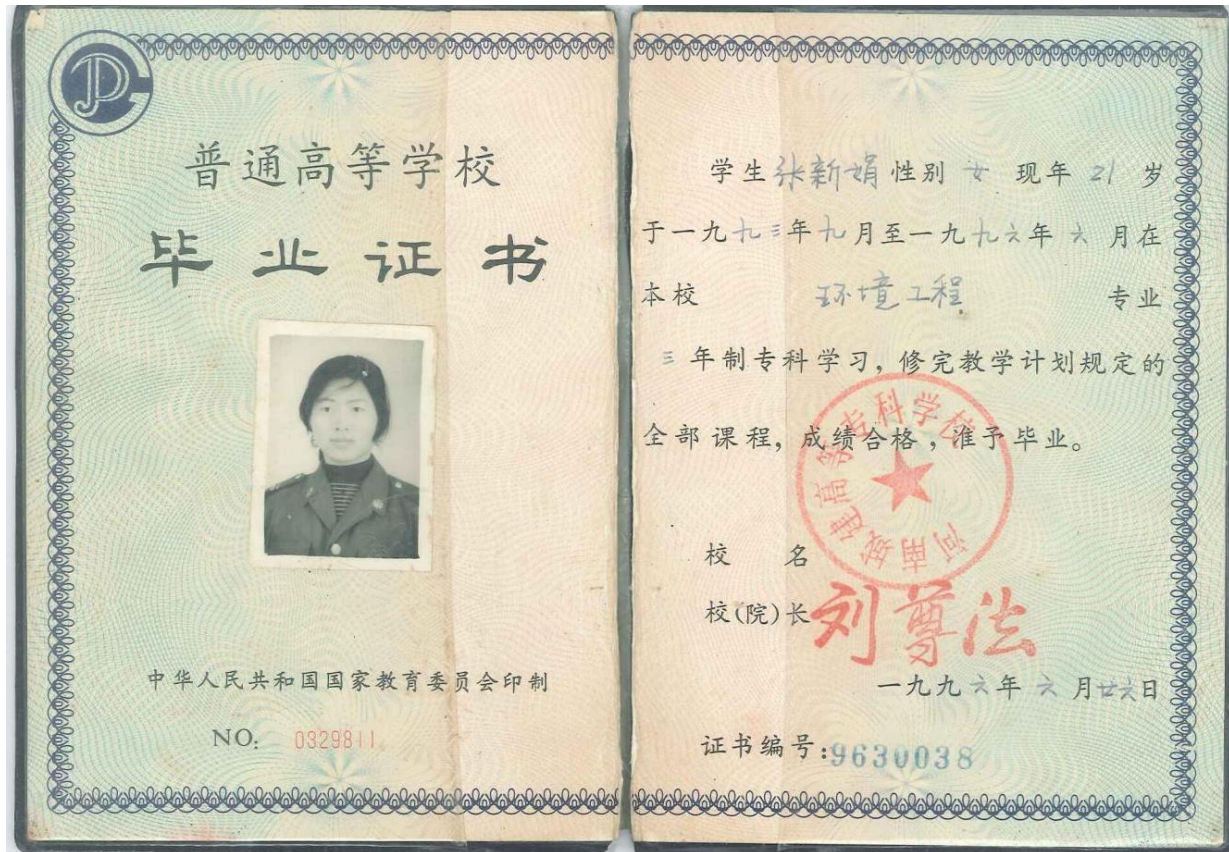 普通高等学校
毕业证书
中华人民共和国国家教育委员会印制
NO: 0329811
学生张新娟性别 女 现年 21 岁
于一九九三年九月至一九九六年 六 月在
本校 环境工程 专业
三 年制专科学习，修完教学计划规定的
全部课程，成绩合格，准予毕业。
河南城建高等专科学校
校 名
校(院)长 刘尊法
一九九六年 六 月廿六日
证书编号:9630038